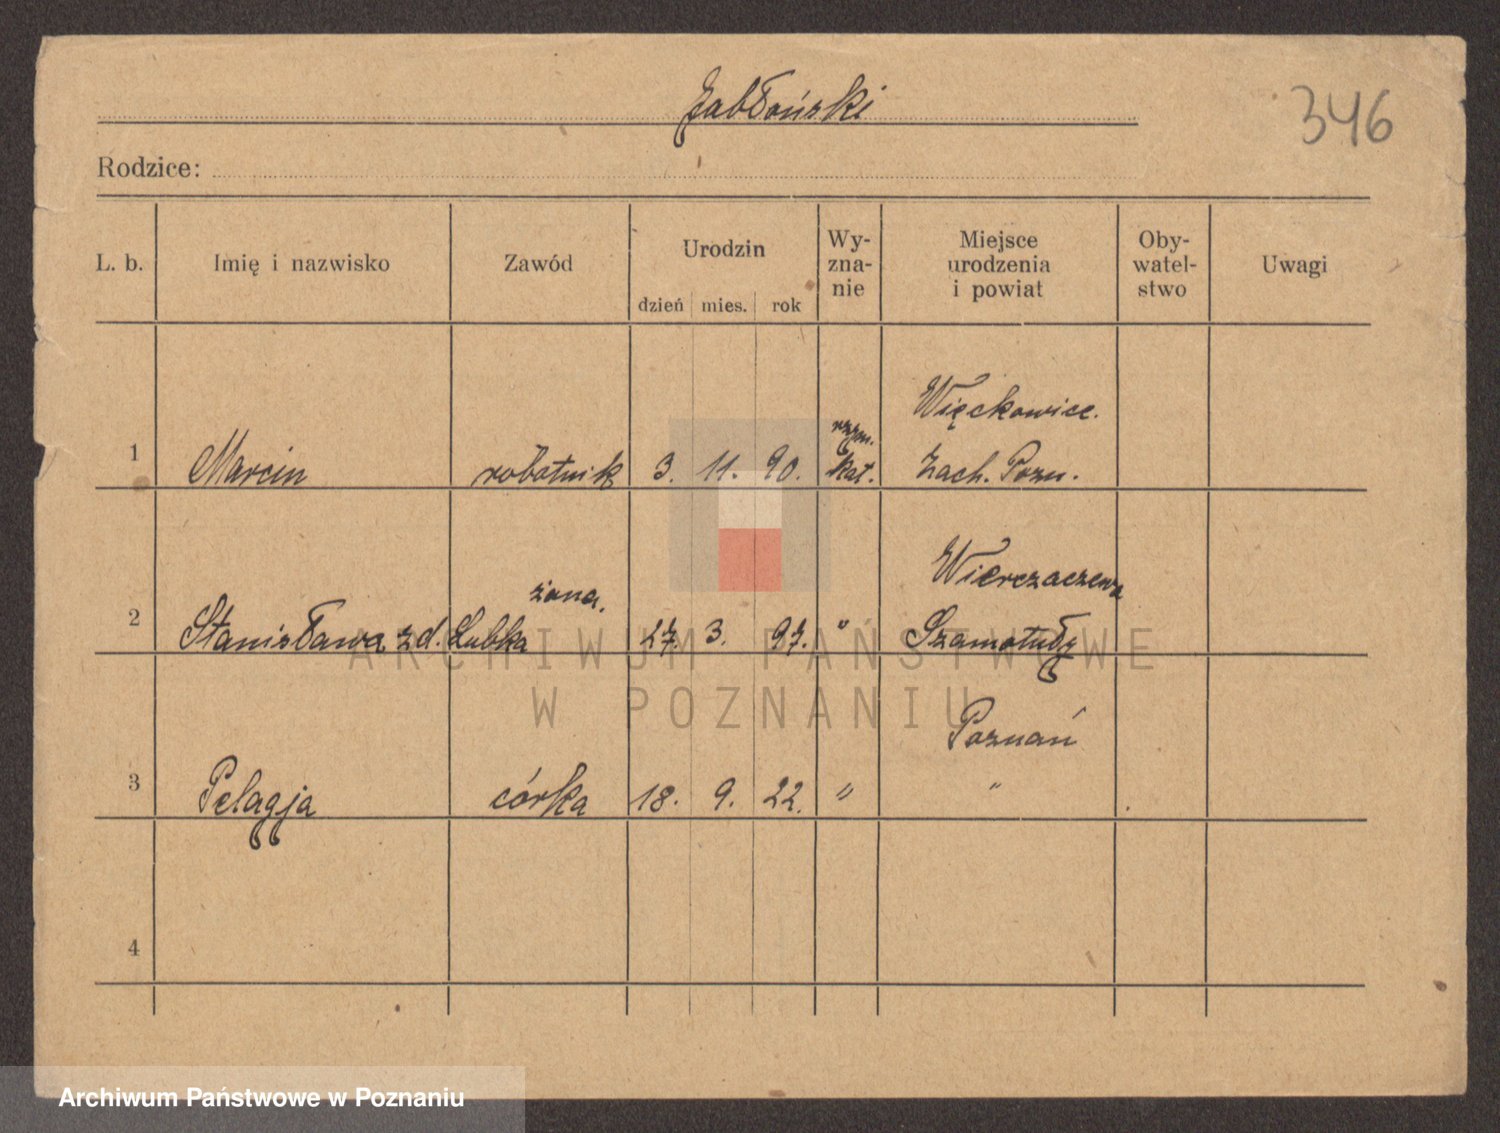 Jabłoński
346
Rodzice:
L. b. Imię i nazwisko Zawód Urodzin dzień mies. rok Wy-zna-nie Miejsce urodzenia i powiat Oby-watel-stwo Uwagi
Więckowice.
rzym.
1 Marcin robotnik 3. 11. 90. kat. Zach. Pozn.
Wierzaczewa
żona.
2 Stanisława z d. Lubka 27. 3. 97. " Szamotuły
ARCHIWUM PAŃSTWOWE
W POZNANIU
Poznań
3 Pelagja córka 18. 9. 22. " "
4
Archiwum Państwowe w Poznaniu